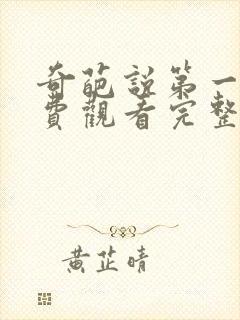 奇葩説第一
費觀看完整
黃芷晴